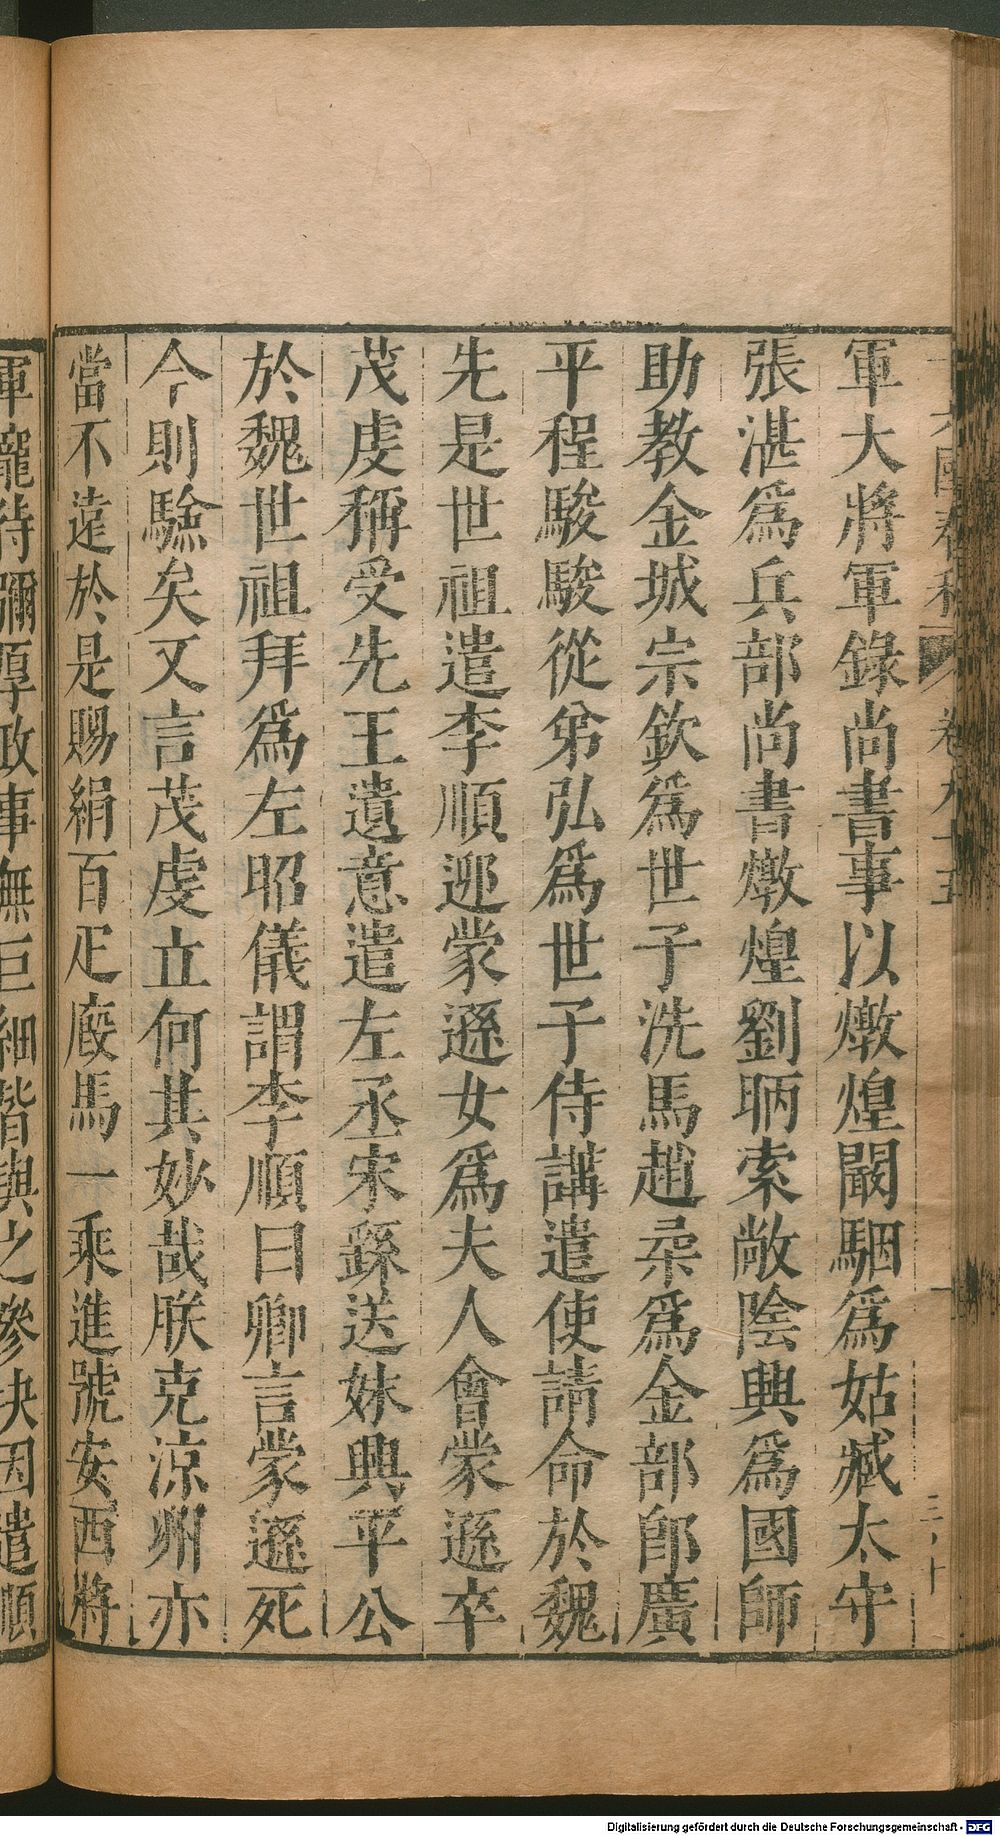 軍大將軍錄尚書事以燉煌闞駰爲姑臧太守
張湛爲兵部尚書燉煌劉昞索敞陰興爲國師
助教金城宗欽爲世子洗馬趙柔爲金部郎廣
平程駿駿從弟弘爲世子侍講遣使請命於魏
先是世祖遣李順迎蒙遜女爲夫人會蒙遜卒
茂虔稱受先王遺意遣左丞宋繇送妹興平公
於魏世祖拜爲左昭儀謂李順曰卿言蒙遜死
今則驗矣又言茂虔立何其妙哉朕克涼州亦
當不遠於是賜絹百疋廄馬一乘進號安西將
軍寵待彌厚政事無巨細皆與之參決因遣順
Digitalisierung gefördert durch die Deutsche Forschungsgemeinschaft - DFG